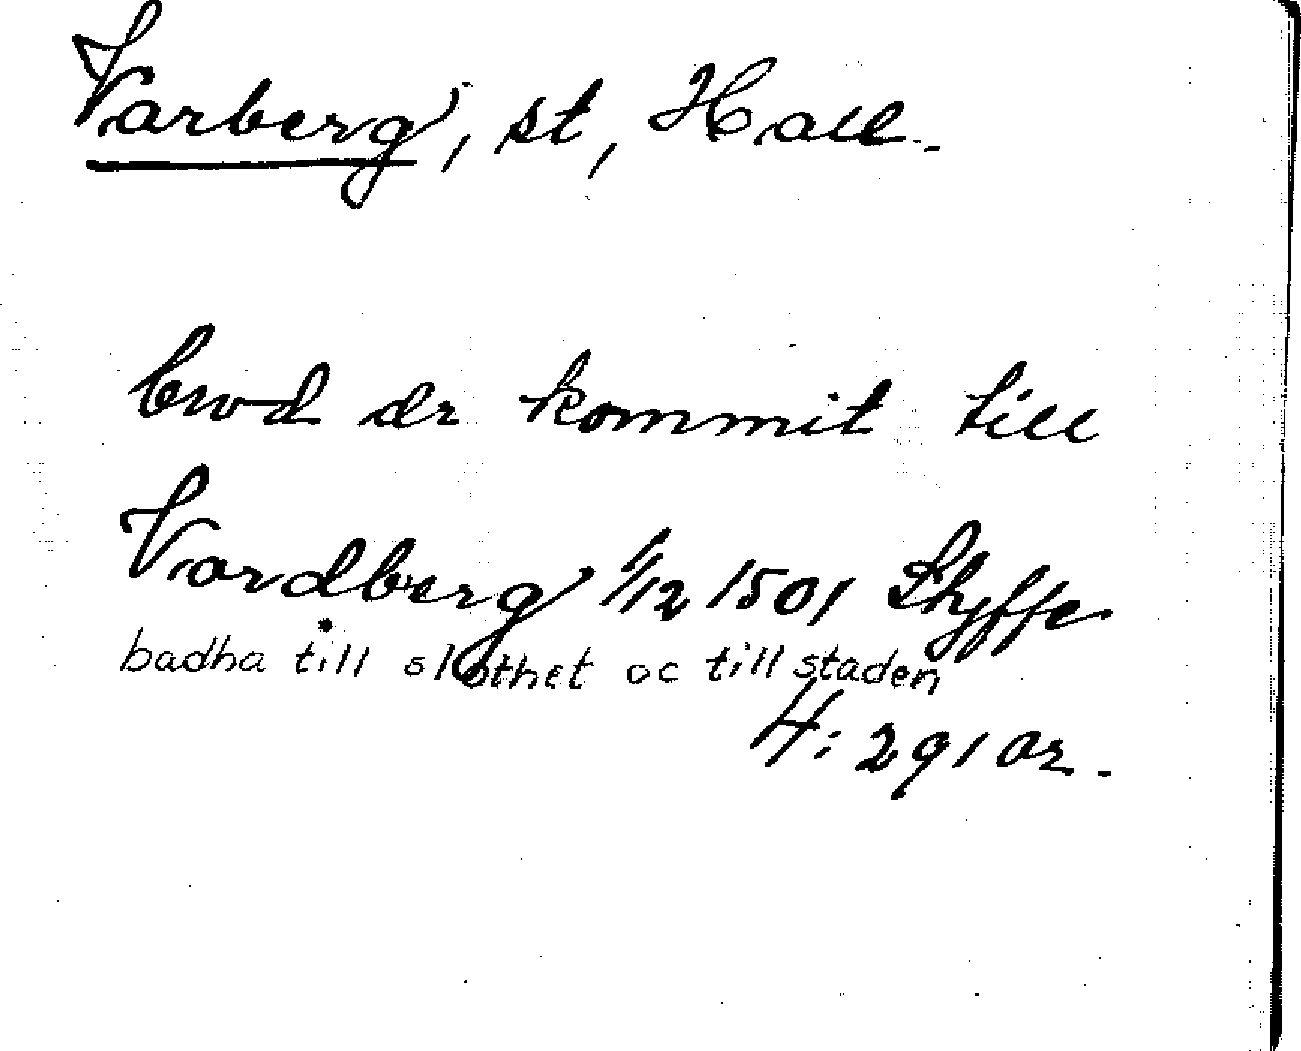 Varberg, st, Hall.
bwd är kommit till
Vardberg 1/12 1501 Styffe
badha till slothet oc till staden
4: 291 or.